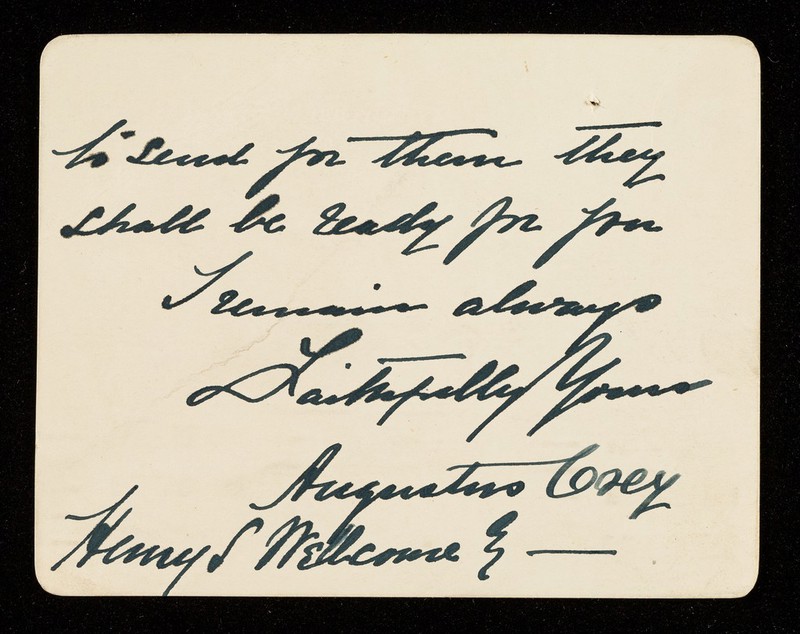 to send for them they
shall be ready for you
I remain always
Faithfully Yours
Augustus
Henry S Wellcome E —